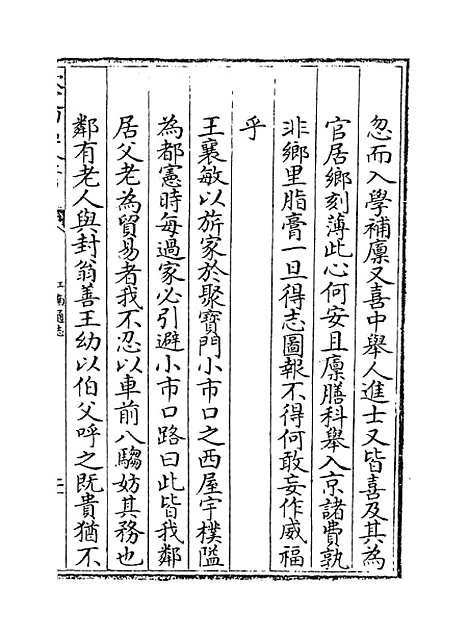 忽而入學補廩又喜中舉人進士又皆喜及其為
官居鄉刻薄此心何安且廩膳科舉入京諸費孰
非鄉里脂膏一旦得志圖報不得何敢妄作威福
乎
王襄敏以旂家於聚寶門小市口之西屋宇樸隘
為都憲時每過家必引避小市口路曰此皆我鄰
居父老為貿易者我不忍以車前八騶妨其務也
鄰有老人與封翁善王幼以伯父呼之既貴猶不
江南通志